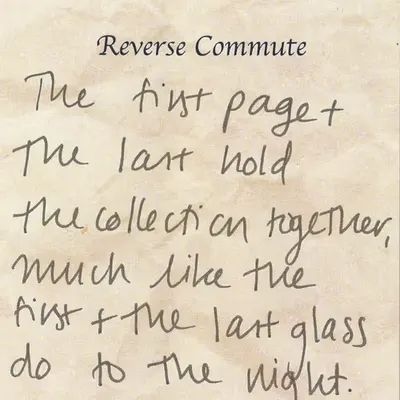 Reverse Commute
The first page +
the last hold
the collection together,
much like the
first + the last glass
do to the night.